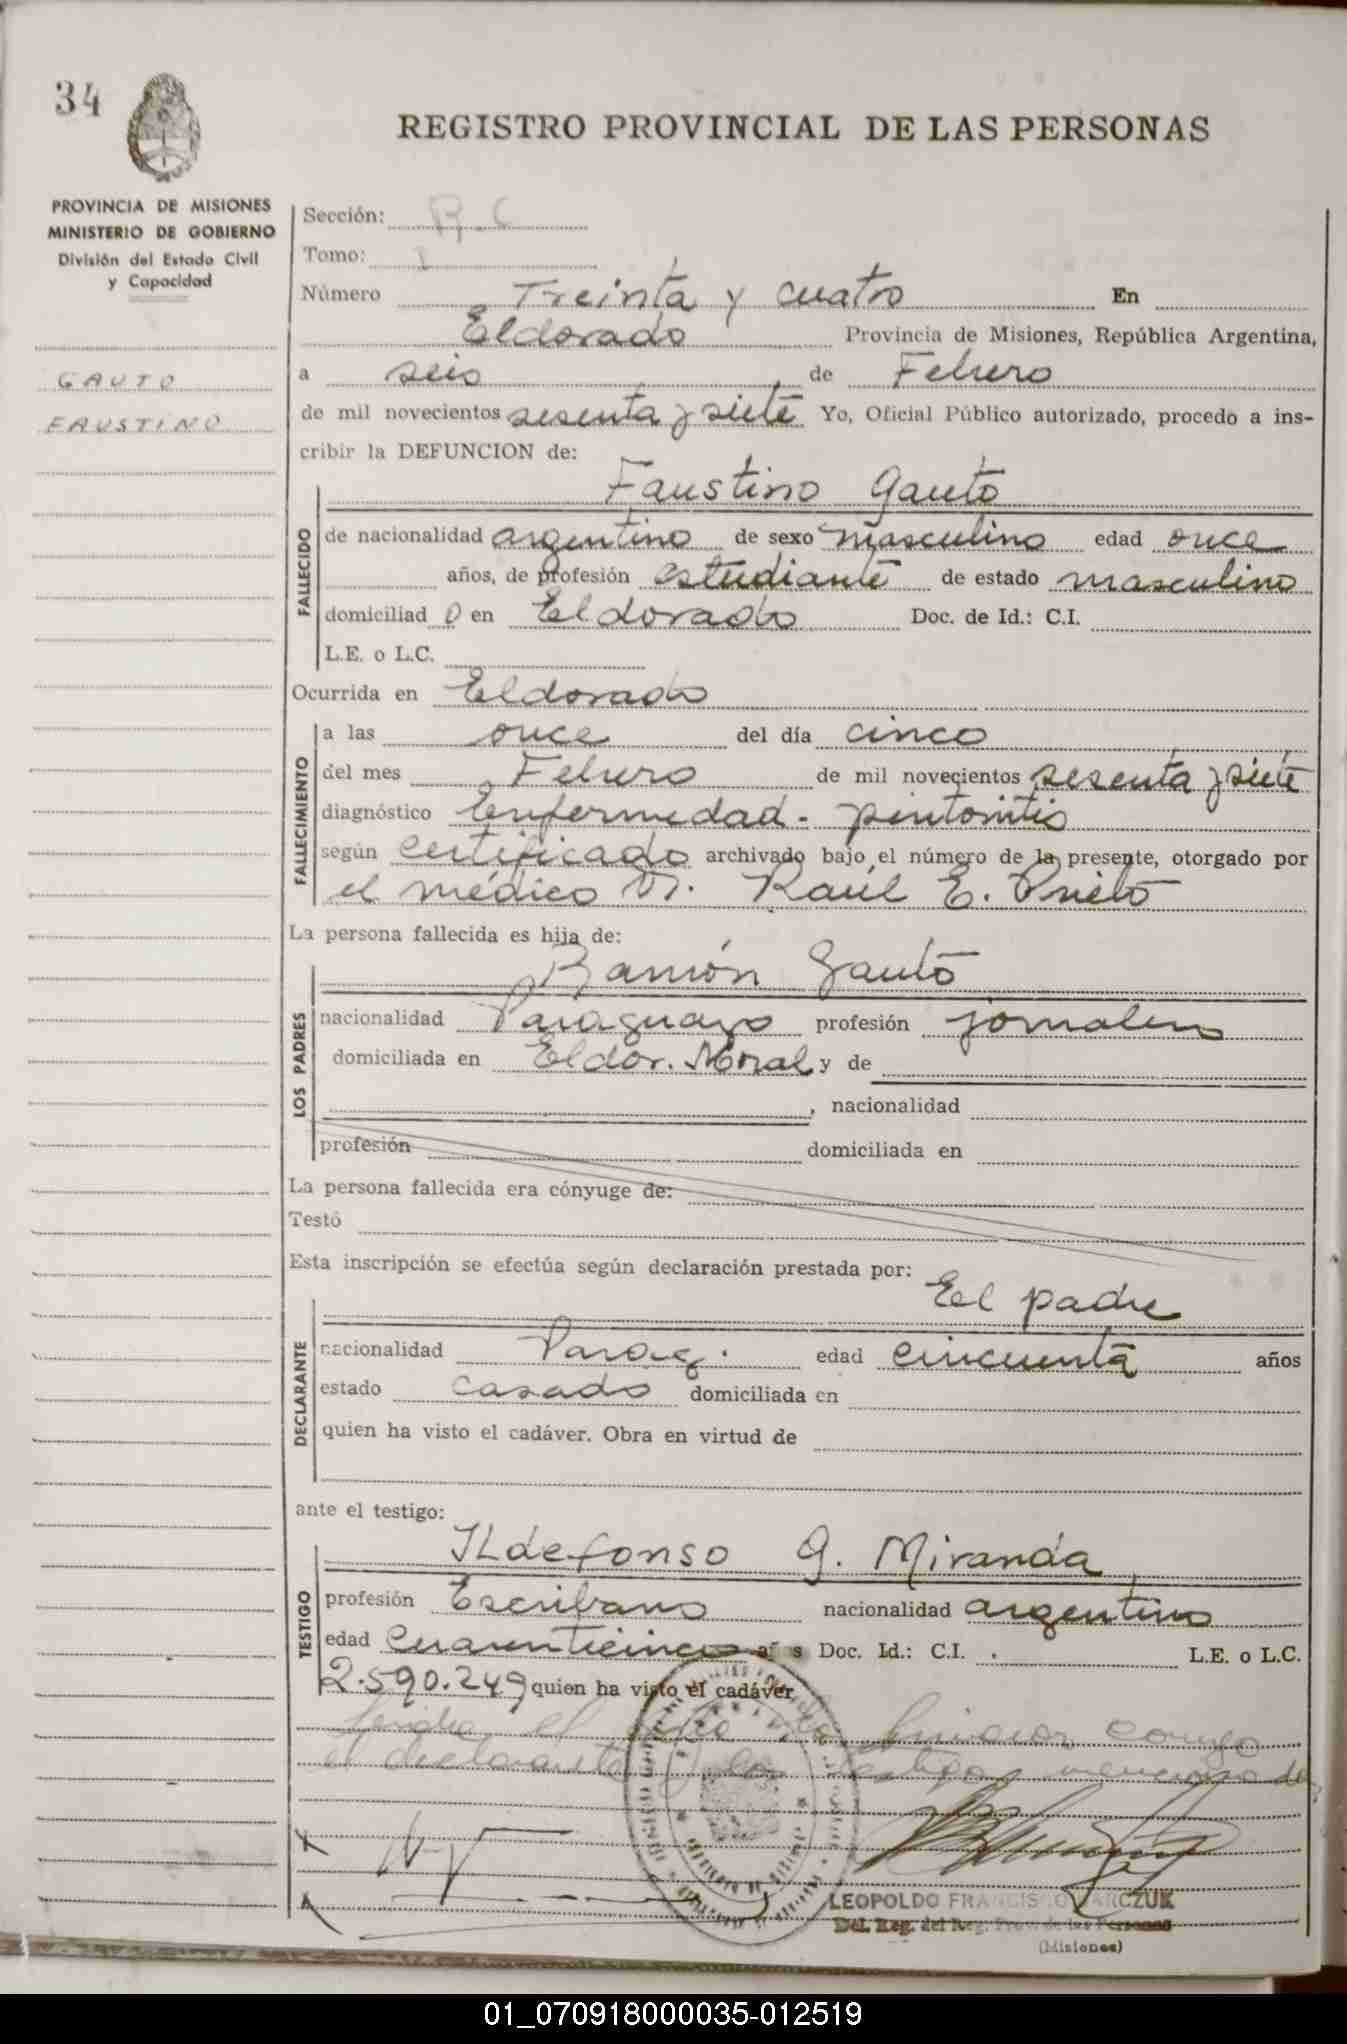 34
REGISTRO PROVINCIAL DE LAS PERSONAS
PROVINCIA DE MISIONES
MINISTERIO DE GOBIERNO
División del Estado Civil
y Capacidad
GAUTO
FAUSTINO
Sección: R. C
Tomo: I
Número Treinta y cuatro En
Eldorado Provincia de Misiones, República Argentina,
a seis de Febrero
de mil novecientos sesenta y siete Yo, Oficial Público autorizado, procedo a ins-
cribir la DEFUNCION de:
Faustino Gauto
FALLECIDO
de nacionalidad argentino de sexo masculino edad once
años, de profesión estudiante de estado masculino
domiciliad o en Eldorado Doc. de Id.: C.I.
L.E. o L.C.
Ocurrida en Eldorado
FALLECIMIENTO
a las once del día cinco
del mes Febrero de mil novecientos sesenta y siete
diagnóstico Enfermedad - 
según certificado archivado bajo el número de la presente, otorgado por
el médico Dr. Raúl E. Prieto
La persona fallecida es hija de:
Ramón Gauto
LOS PADRES
nacionalidad Paraguayo profesión jornalero
domiciliada en Eldor. y de
, nacionalidad
profesión domiciliada en
La persona fallecida era cónyuge de:
Testó
Esta inscripción se efectúa según declaración prestada por:
El padre
DECLARANTE
nacionalidad Parag. edad cincuenta años
estado casado domiciliada en
quien ha visto el cadáver. Obra en virtud de
ante el testigo:
ILdefonso G. Miranda
TESTIGO
profesión Escribano nacionalidad argentino
edad cuarenticinco años Doc. Id.: C.I. . L.E. o L.C.
2.590.249 quien ha visto el cadáver
el acta la conmigo
el declarante y los testigo
LEOPOLDO FRANCISCO
Del. Reg. del Reg. Prov. de las Personas
(Misiones)
01_070918000035-012519